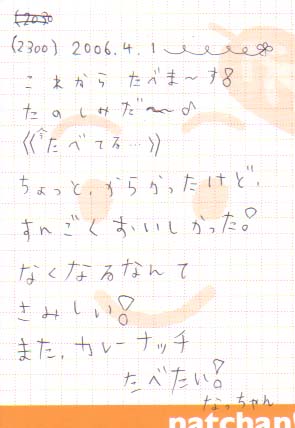 (2030
(2300) 2006.4.1
これから たべま〜す
たのしみだ〜♪
《今たべてる…》
ちょっと、からかったけど、
すんごくおいしかった!
なくなるなんて
さみしい!
また、カレーナッチ
たべたい!
なっちゃん
natchan!